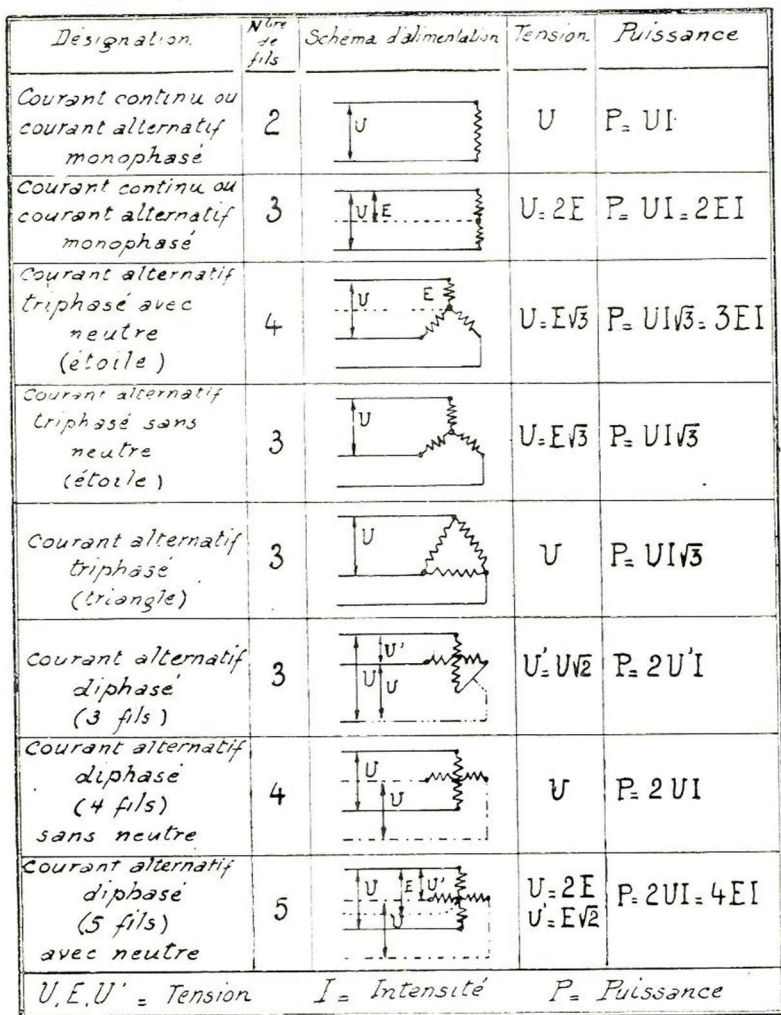 Désignation
Nbre de fils
Schéma d'alimentation
Tension
Puissance
Courant continu ou
courant alternatif
monophasé
2
U
U
P= UI
Courant continu ou
courant alternatif
monophasé
3
U E
U= 2E
P= UI = 2EI
Courant alternatif
triphasé avec
neutre
(étoile)
4
U E
U= E√3
P= UI√3= 3EI
Courant alternatif
triphasé sans
neutre
(étoile)
3
U
U= E√3
P= UI√3
Courant alternatif
triphasé
(triangle)
3
U
U
P= UI√3
Courant alternatif
diphasé
(3 fils)
3
U'
U U
U'= U√2
P= 2U'I
Courant alternatif
diphasé
(4 fils)
sans neutre
4
U
U
U
P= 2UI
Courant alternatif
diphasé
(5 fils)
avec neutre
5
U E U'
U
U= 2E
U'= E√2
P= 2UI= 4EI
U, E, U' = Tension I= Intensité P= Puissance